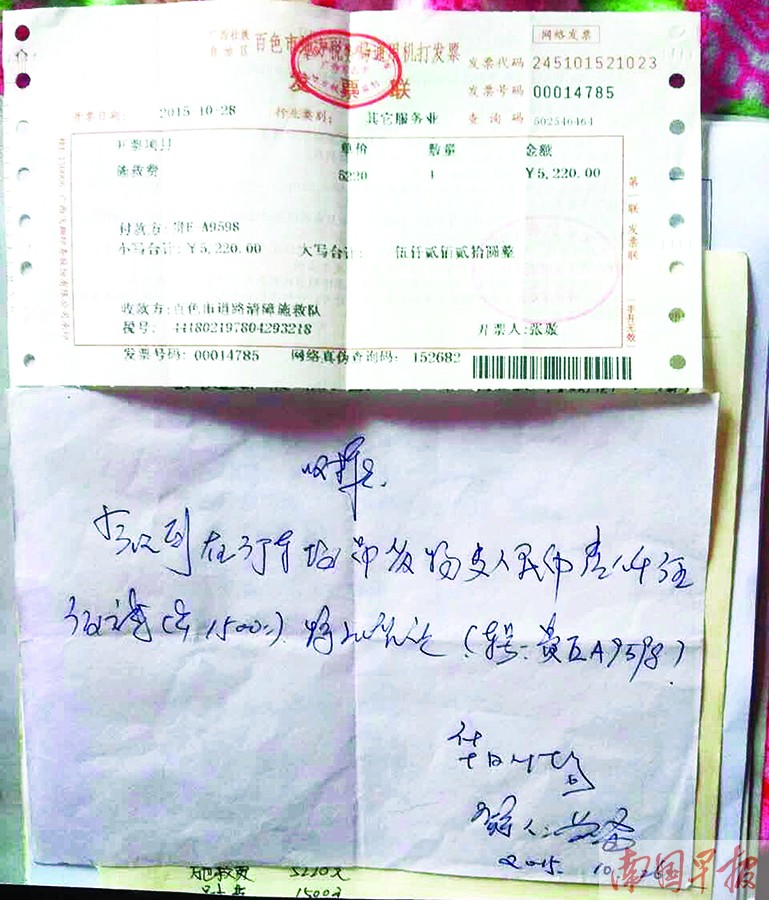 广西壮族
自治区 百色市 通用机打发票
网络发票
发票联
发票代码 245101521023
发票号码 00014785
开票日期: 2015-10-28 行业类别: 其它服务业 查询码 502546464
开票项目 单价 数量 金额
施救费 5220 1 ￥5,220.00
付款方: 贵E A9598
小写合计: ￥5,220.00 大写合计: 伍仟贰佰贰拾圆整
收款方: 百色市道路清障施救队
税号: 444802197804293218 开票人: 张
发票号码: 00014785 网络真伪查询码: 152682
第一联 发票联
手开无效
收据
今收到在 车 货物 人民币壹仟伍
佰元 1500 (车号: 贵EA9598)
人:
2015. 10. 28
施救费 5220元
1500元
南国早报